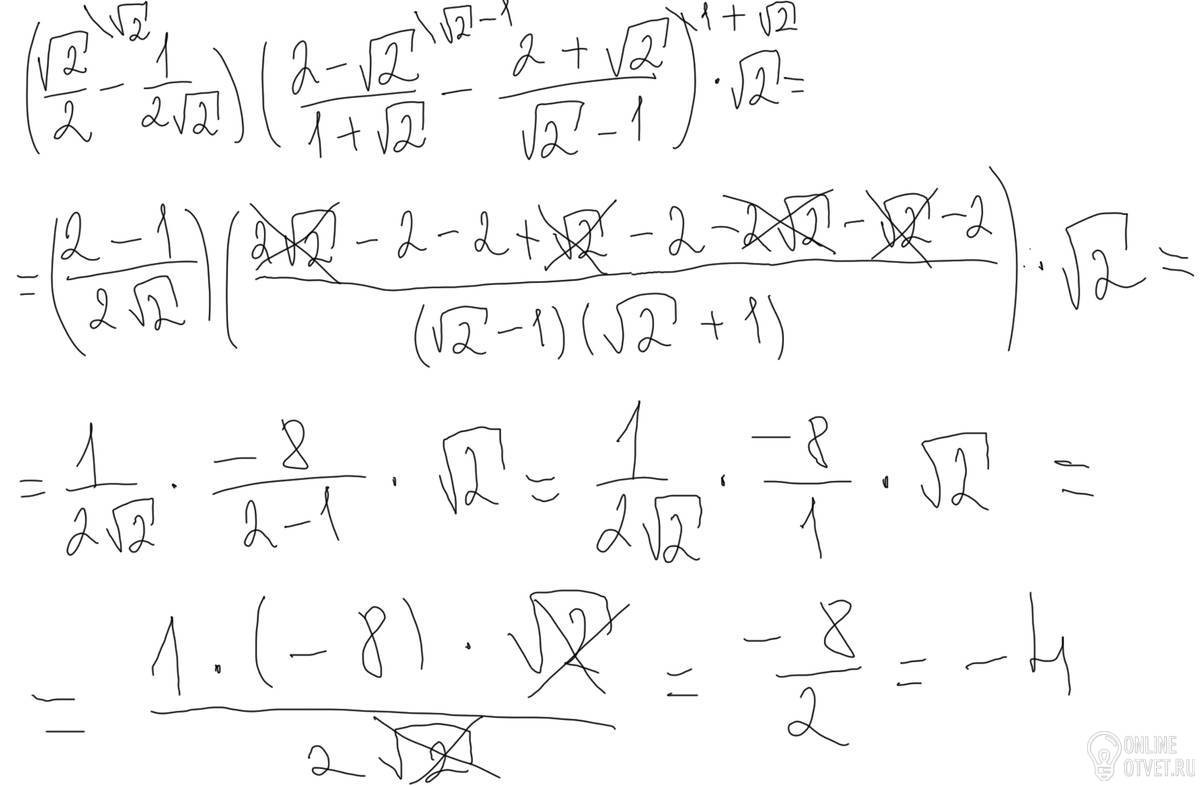 (√2/2 \√2 − 1/(2√2)) ((2−√2)/(1+√2) \√2−1 − (2+√2)/(√2−1) \1+√2) · √2 =
= ((2−1)/(2√2)) ((2√2 − 2 − 2 + √2 − 2 − 2√2 − √2 − 2)/((√2−1)(√2+1))) · √2 =
= 1/(2√2) · −8/(2−1) · √2 = 1/(2√2) · −8/1 · √2 =
= (1·(−8)·√2)/(2√2) = −8/2 = −4
ONLINE
OTVET.RU